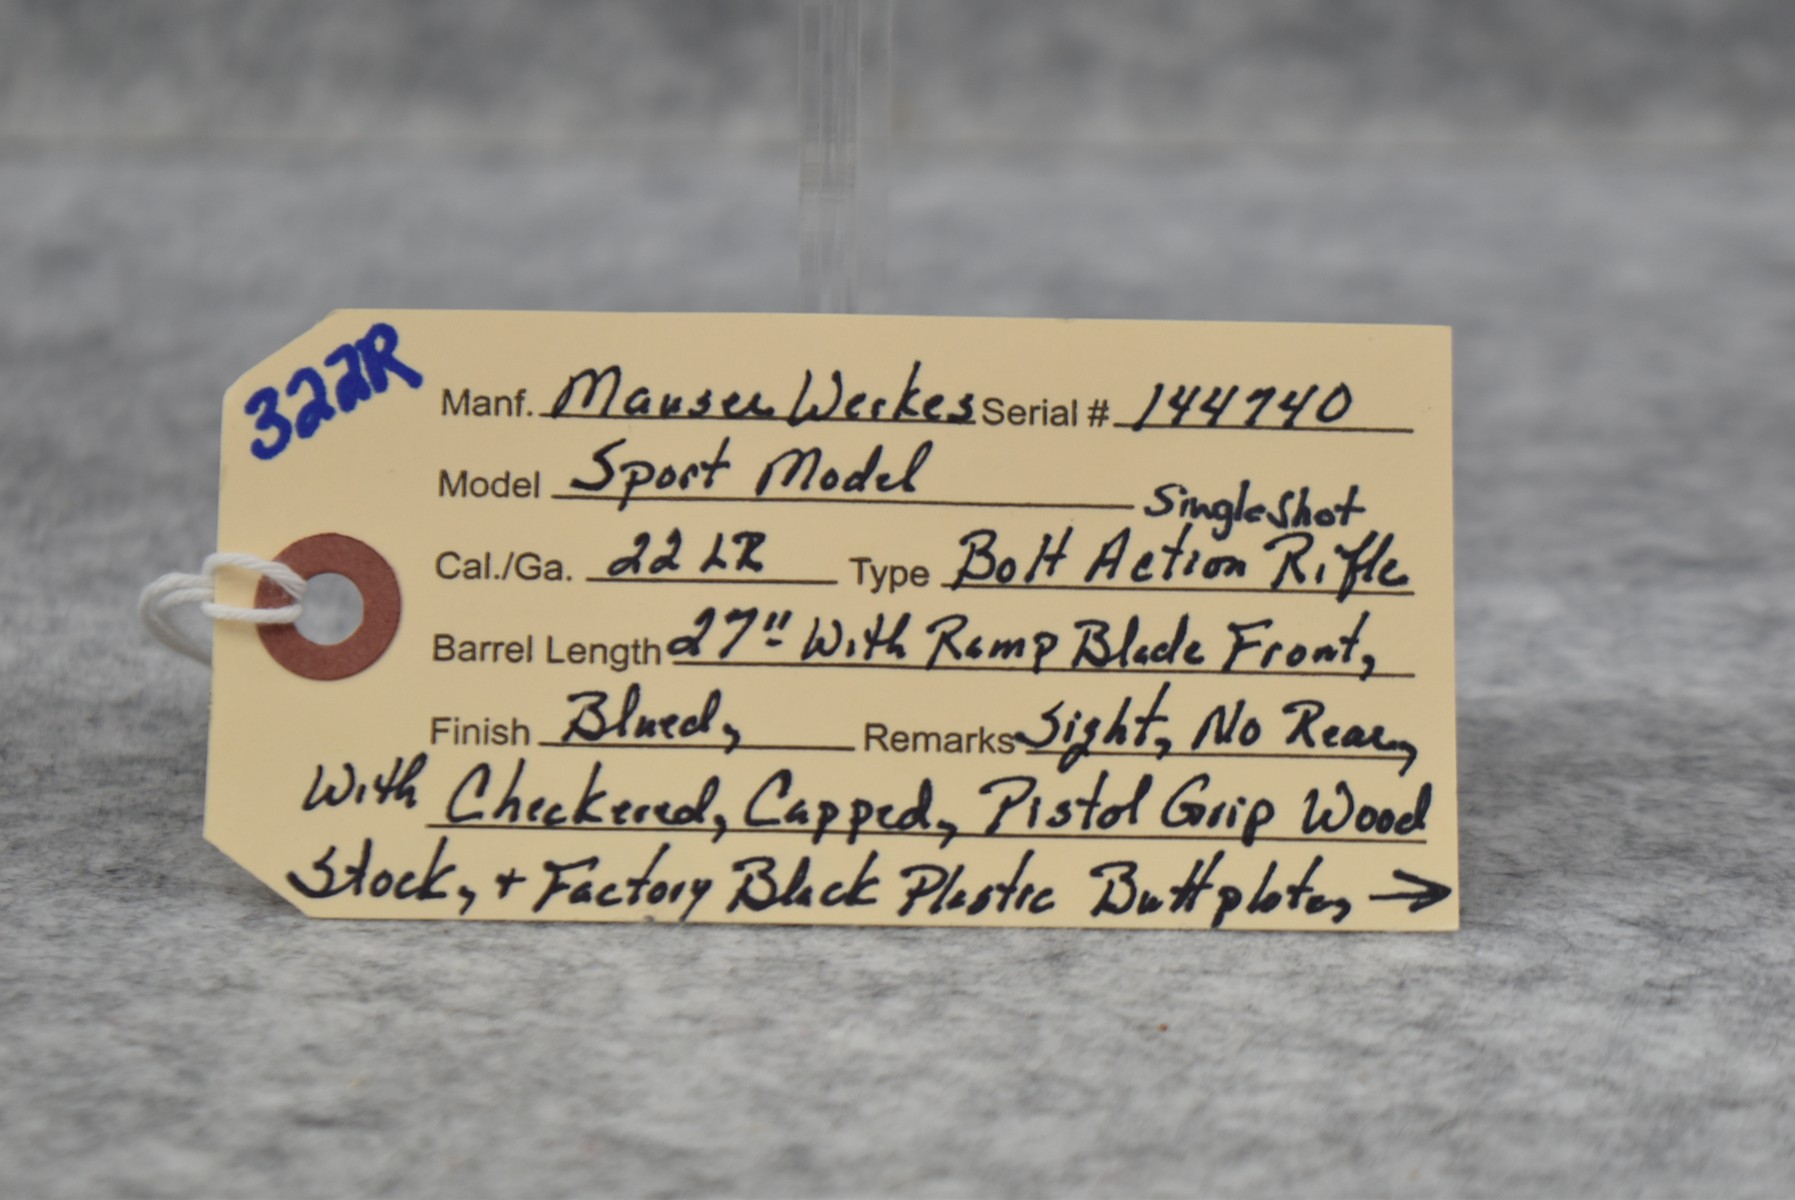 322R
Manf. Mauser Werkes Serial # 144740
Model Sport Model
Single Shot
Cal./Ga. 22 LR Type Bolt Action Rifle
Barrel Length 27" With Ramp Blade Front,
Finish Blued, Remarks Sight, No Rear,
With Checkered, Capped, Pistol Grip Wood
Stock, + Factory Black Plastic Buttplate, →